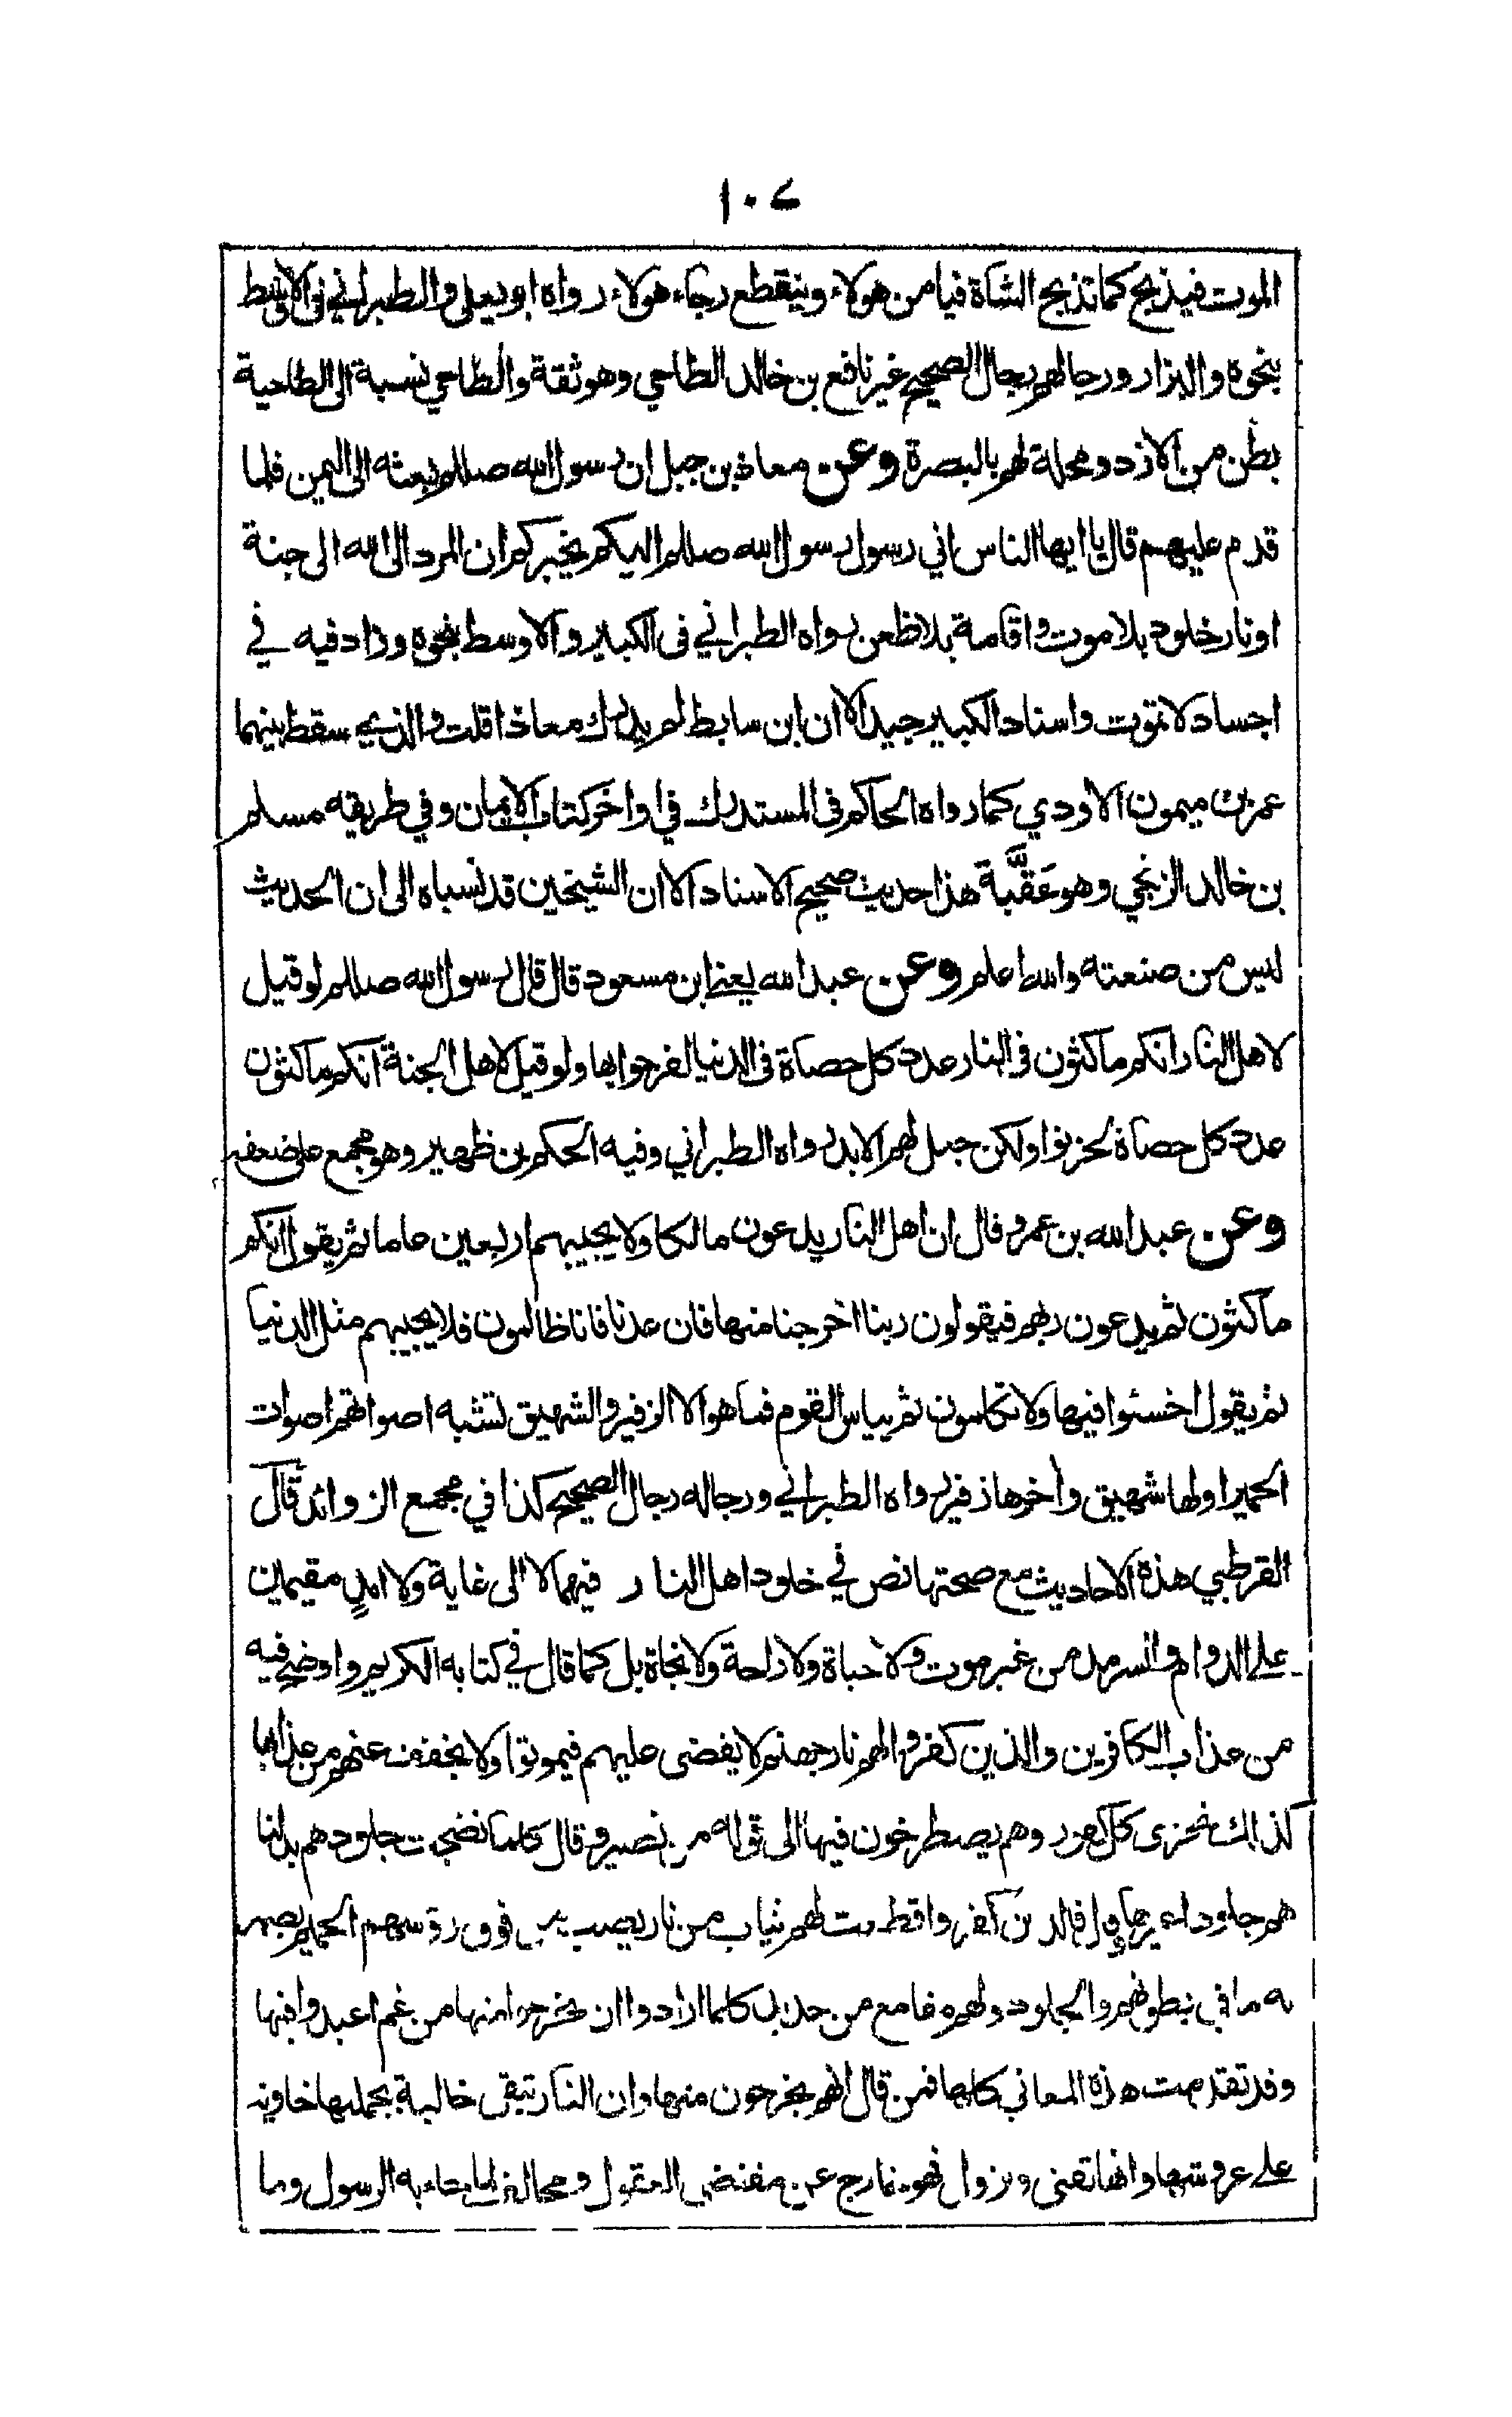 ١٠٧
الموت فيذبح كما تذبح الشاة فيامن هولاء وينقطع رجاء هولاء رواه ابو يعلى والطبراني في الاوسط
بنحوه والبزار ورجالهم رجال الصحيح غير نافع بن خالد الطاحي وهو ثقة والطاحي نسبة الى الطاحية
بطن من الازد ومحلة لهم بالبصرة وعن معاذ بن جبل ان رسول الله صللم بعثه الى اليمن فلما
قدم عليهم قال يا ايها الناس اني رسول رسول الله صللم اليكم يخبركم ان المرد الى الله الى جنة
او نار خلود بلا موت واقامة بلا ظعن رواه الطبراني في الكبير والاوسط بنحوه وزاد فيه في
اجساد لا تموت واسناد الكبير جيد الا ان ابن سابط لم يدرك معاذا قلت والذي سقط بينهما
عمرو بن ميمون الاودي كما رواه الحاكم في المستدرك في اواخر كتاب الايمان وفي طريقه مسلم
بن خالد الزنجي وهو عَقَّبَة هذا حديث صحيح الاسناد الا ان الشيخين قد نسباه الى ان الحديث
ليس من صنعته والله اعلم وعن عبد الله يعني ابن مسعود قال قال رسول الله صللم لو قيل
لاهل النار انكم ماكثون في النار عدد كل حصاة في الدنيا لفرحوا بها ولو قيل لاهل الجنة انكم ماكثون
عدد كل حصاة لحزنوا ولكن جبل لهم الابد رواه الطبراني وفيه الحكم بن ظهير وهو مجمع على ضعفه
وعن عبد الله بن عمرو قال ان اهل النار يدعون مالكا ولا يجيبهم اربعين عاما ثم يقول انكم
ماكثون ثم يدعون ربهم فيقولون ربنا اخرجنا منها فان عدنا فانا ظالمون فلا يجيبهم مثل الدنيا
ثم يقول اخسئوا فيها ولا تكلمون ثم يياس القوم فما هو الا الزفير والشهيق تشبه اصواتهم اصوات
الحمير اولها شهيق وأخرها زفير رواه الطبراني ورجاله رجال الصحيح كذا في مجمع الزوائد قال
القرطبي هذه الاحاديث مع صحتها نص في خلود اهل النار فيها لا الى غاية ولا امدٍ مقيمين
على الدوام والسرمد من غير موت ولا حياة ولا راحة ولا نجاة بل كما قال في كتابه الكريم واوضح فيه
من عذاب الكافرين والذين كفروا لهم نار جهنم لا يقضى عليهم فيموتوا ولا يخفف عنهم من عذابها
كذالك نجزى كل كفور وهم يصطرخون فيها الى قوله من نصير وقال كلما نضجت جلودهم بدلنا
هم جلودا غيرها وقال فالذين كفروا قطعت لهم ثياب من نار يصب من فوق رؤسهم الحميم يصهر
به ما في بطونهم والجلود ولهم مقامع من حديد كلما ارادوا ان يخرجوا منها من غم اعيدوا فيها
وقد تقدمت هذه المعاني كلها فمن قال انهم يخرجون منها وان النار تبقى خالية بجملتها خاوية
على عروشها وانها تفنى وتزول فهو خارج عن مقتضى المعقول ومخالف لما جاء به الرسول وما